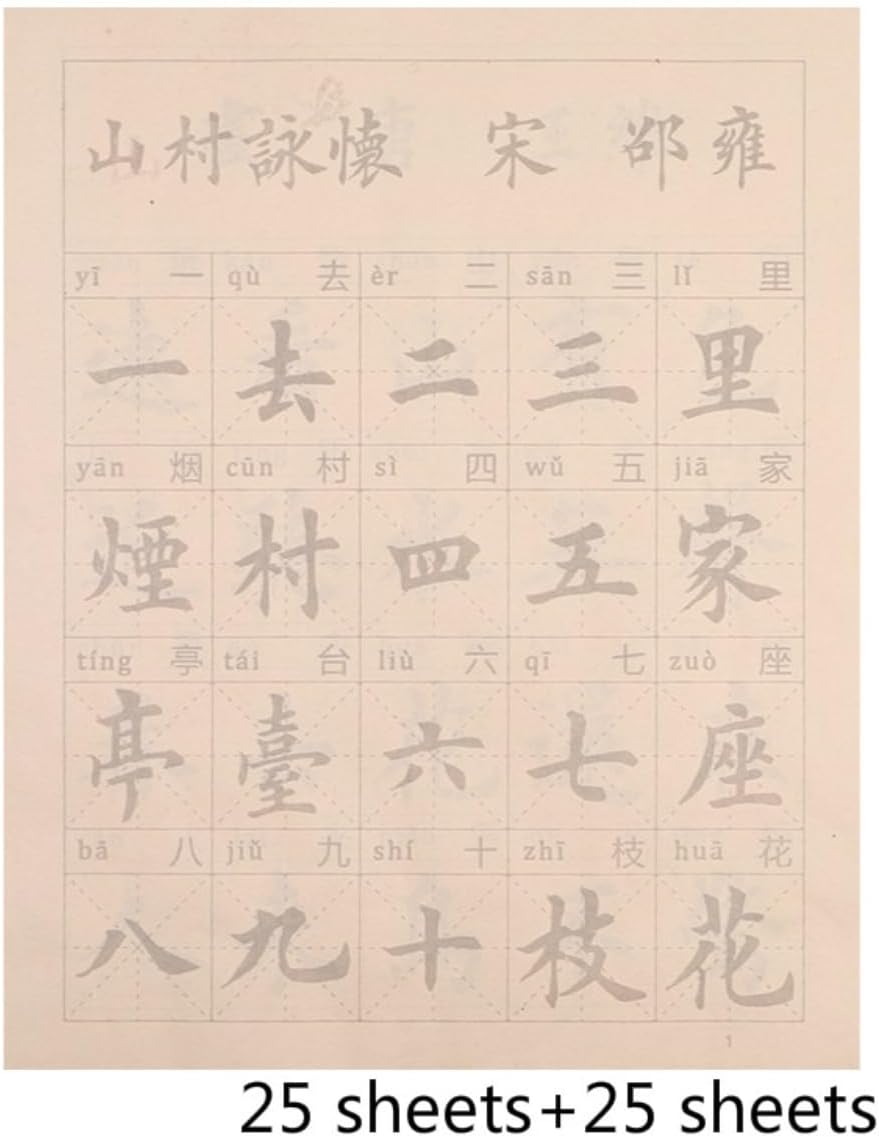 山村詠懷 宋 邵雍
yī 一 qù 去 èr 二 sān 三 lǐ 里
一 去 二 三 里
yān 烟 cūn 村 sì 四 wǔ 五 jiā 家
煙 村 四 五 家
tíng 亭 tái 台 liù 六 qī 七 zuò 座
亭 臺 六 七 座
bā 八 jiǔ 九 shí 十 zhī 枝 huā 花
八 九 十 枝 花
1
25 sheets+25 sheets